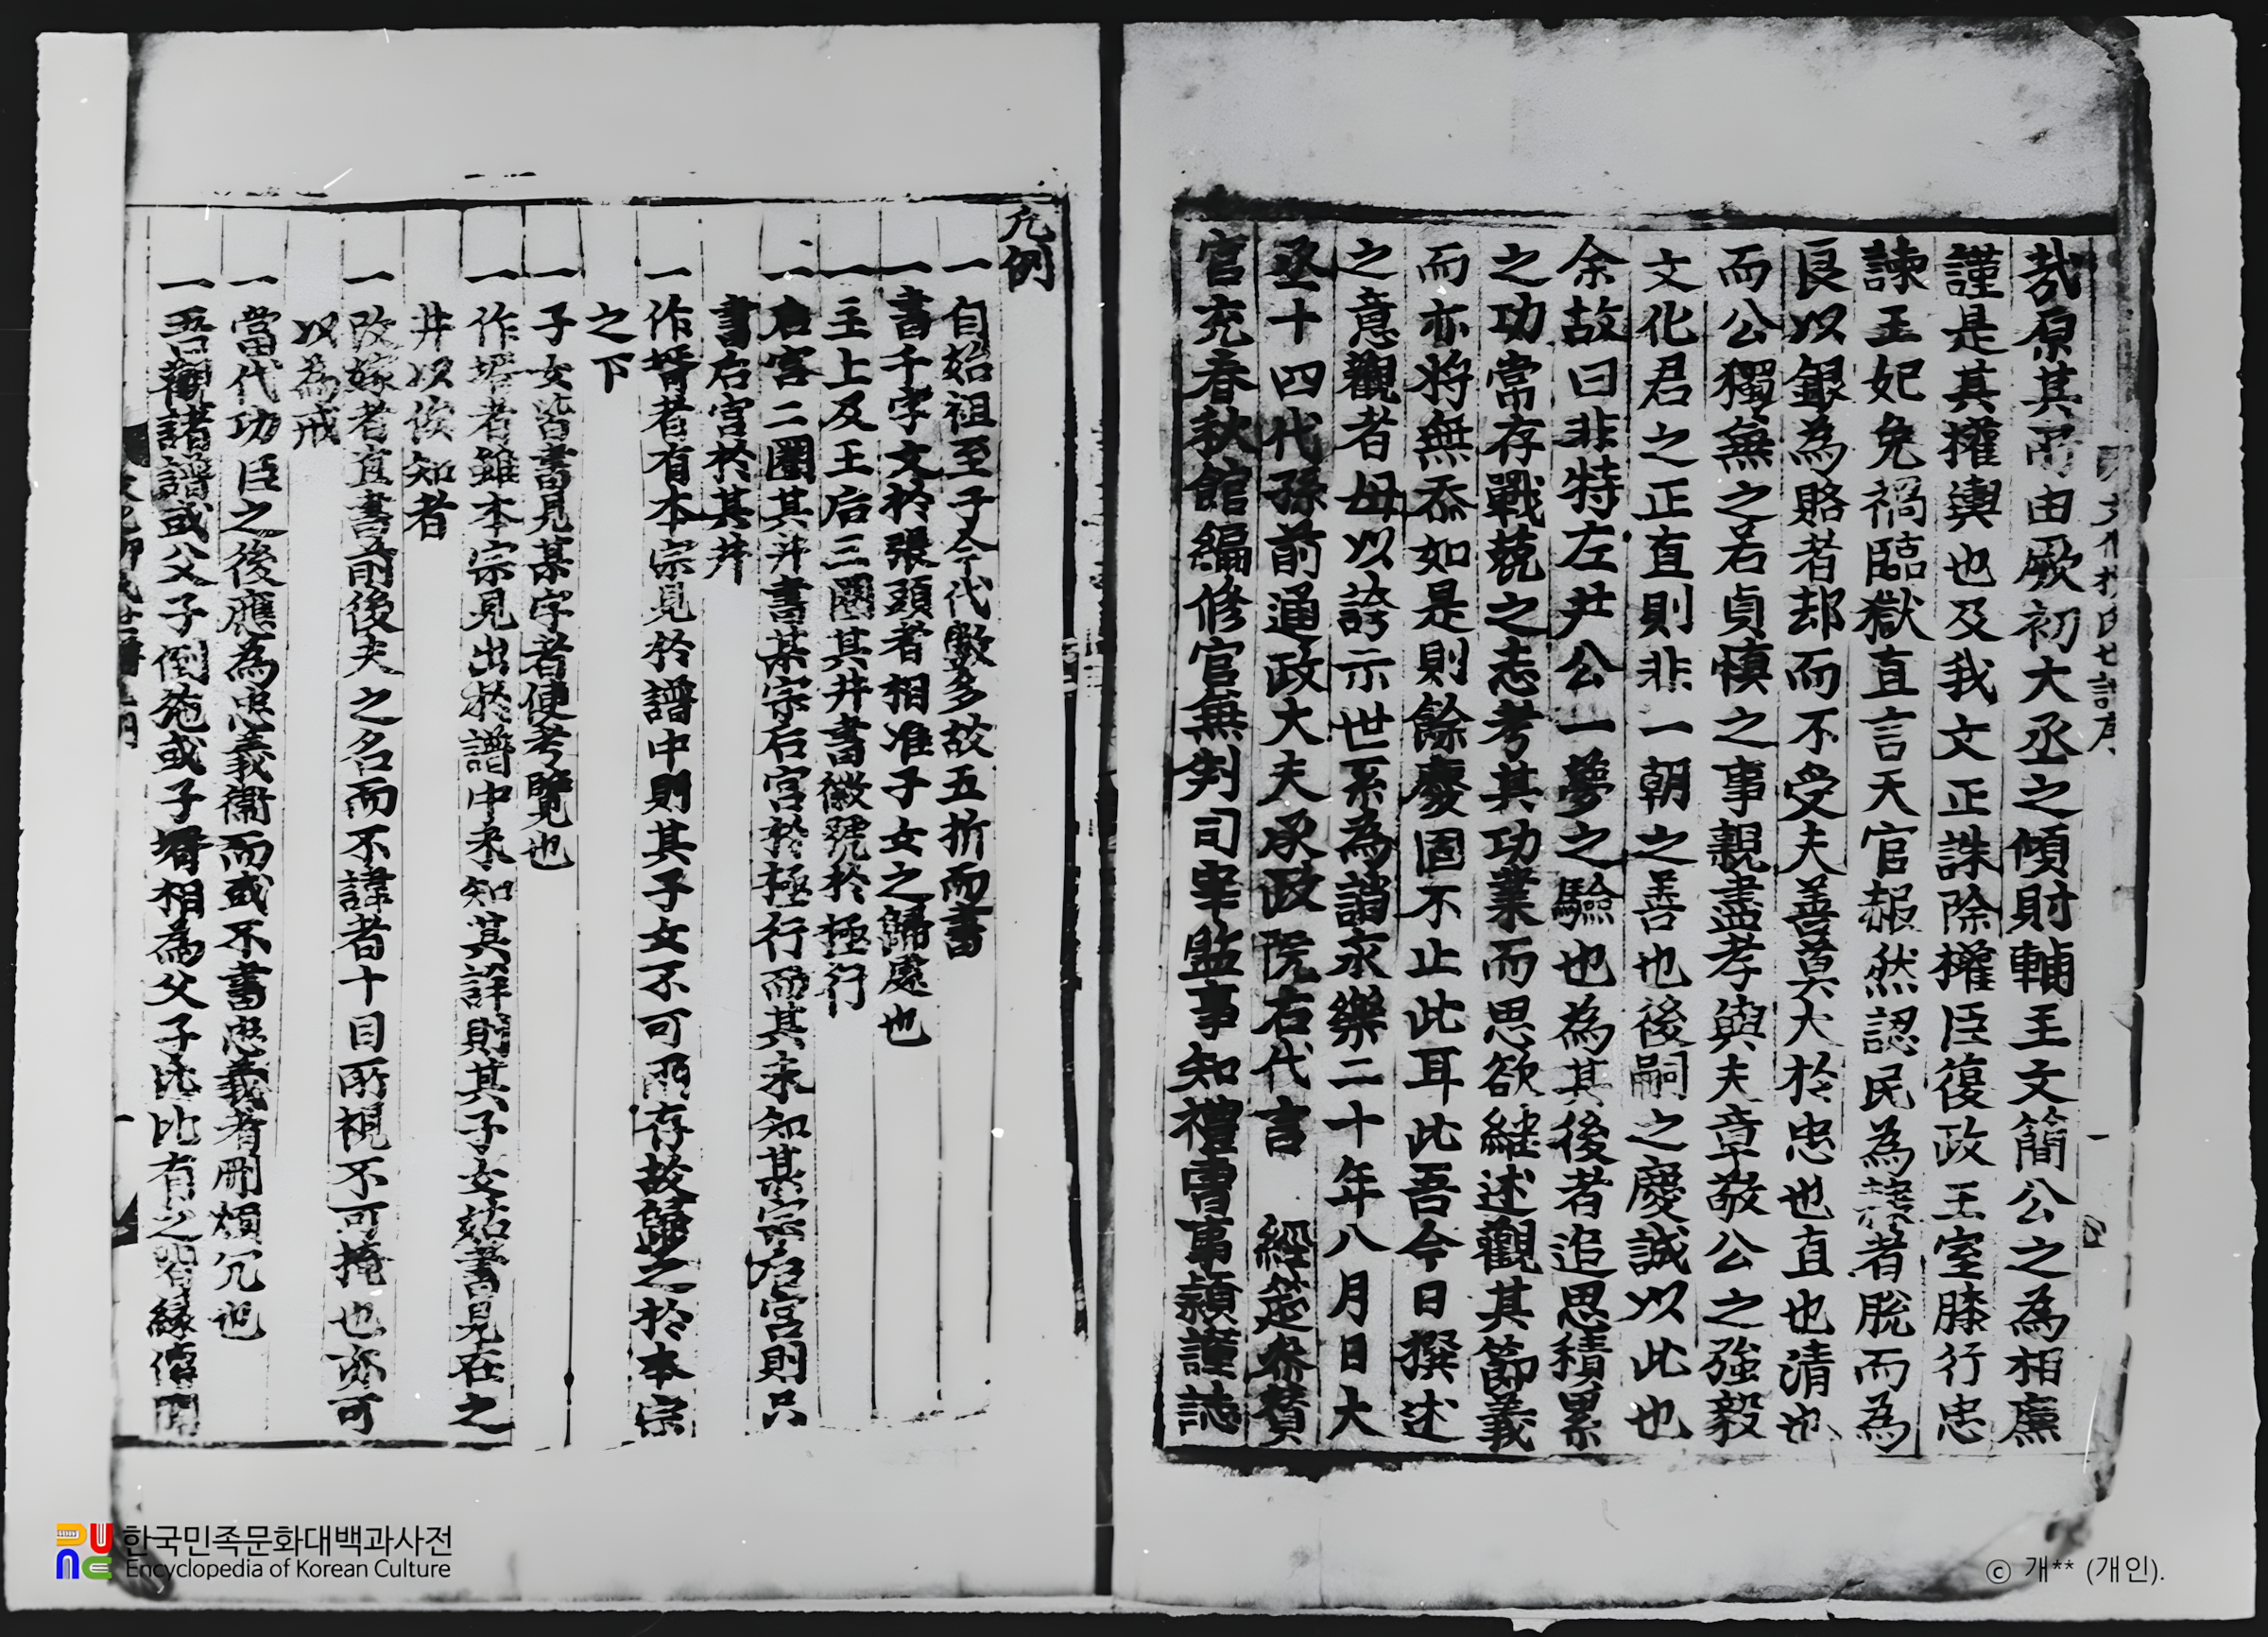 哉原其所由厥初大丞之傾財輔王文簡公之為相廉
謹是其權輿也及我文正誅除權臣復政王室膝行忠
諫王妃免禍臨獄直言天官赧然認民為隸者脫而為
良以銀為賂者却而不受夫善莫大於忠也直也清也
而公獨無之若貞愼之事親盡孝與夫章敬公之強毅
文化君之正直則非一朝之善也後嗣之慶誠以此也
余故曰非特左尹公一夢之驗也為其後者追思積累
之功當存戰兢之志考其功業而思欲継述觀其節義
而亦將無忝如是則餘慶固不止此耳此吾今日撰述
之意觀者毋以誇示世系為誚永樂二十年八月日大
丞十四代孫前通政大夫承政院右代言 經筵參贊
官充春秋館編修官無判司宰監事知禮曹事頴謹誌
凡例
一自始祖至子今代數多故五折而書
一書千字文於張頭者相准子女之歸處也
一主上及王后三圈其井書徽號於極行
一后宮二圈其井書某宗后宮於極行而其未知某宗后宮則只
書后宮於其井
一作壻者有本宗見於譜中則其子女不可兩存故歸之於本宗
之下
一子女皆書見某字者便考覽也
一作壻者雖本宗見出於譜中未知其詳則其子女姑書見在之
井以俟知者
一改嫁者直書前後夫之名而不諱者十目所視不可掩也亦可
以為戒
一當代功臣之後應為忠義衛而或不書忠義者刪煩冗也
一吾觀諸譜或父子倒施或子壻相為父子比比有之
한국민족문화대백과사전
Encyclopedia of Korean Culture
© 개** (개인).